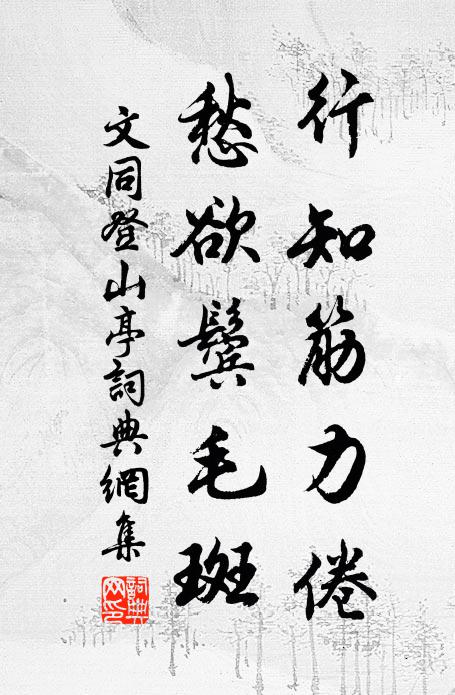 行知筋力倦
愁欲鬓毛斑
文同登山亭詞典網集
詞典网印